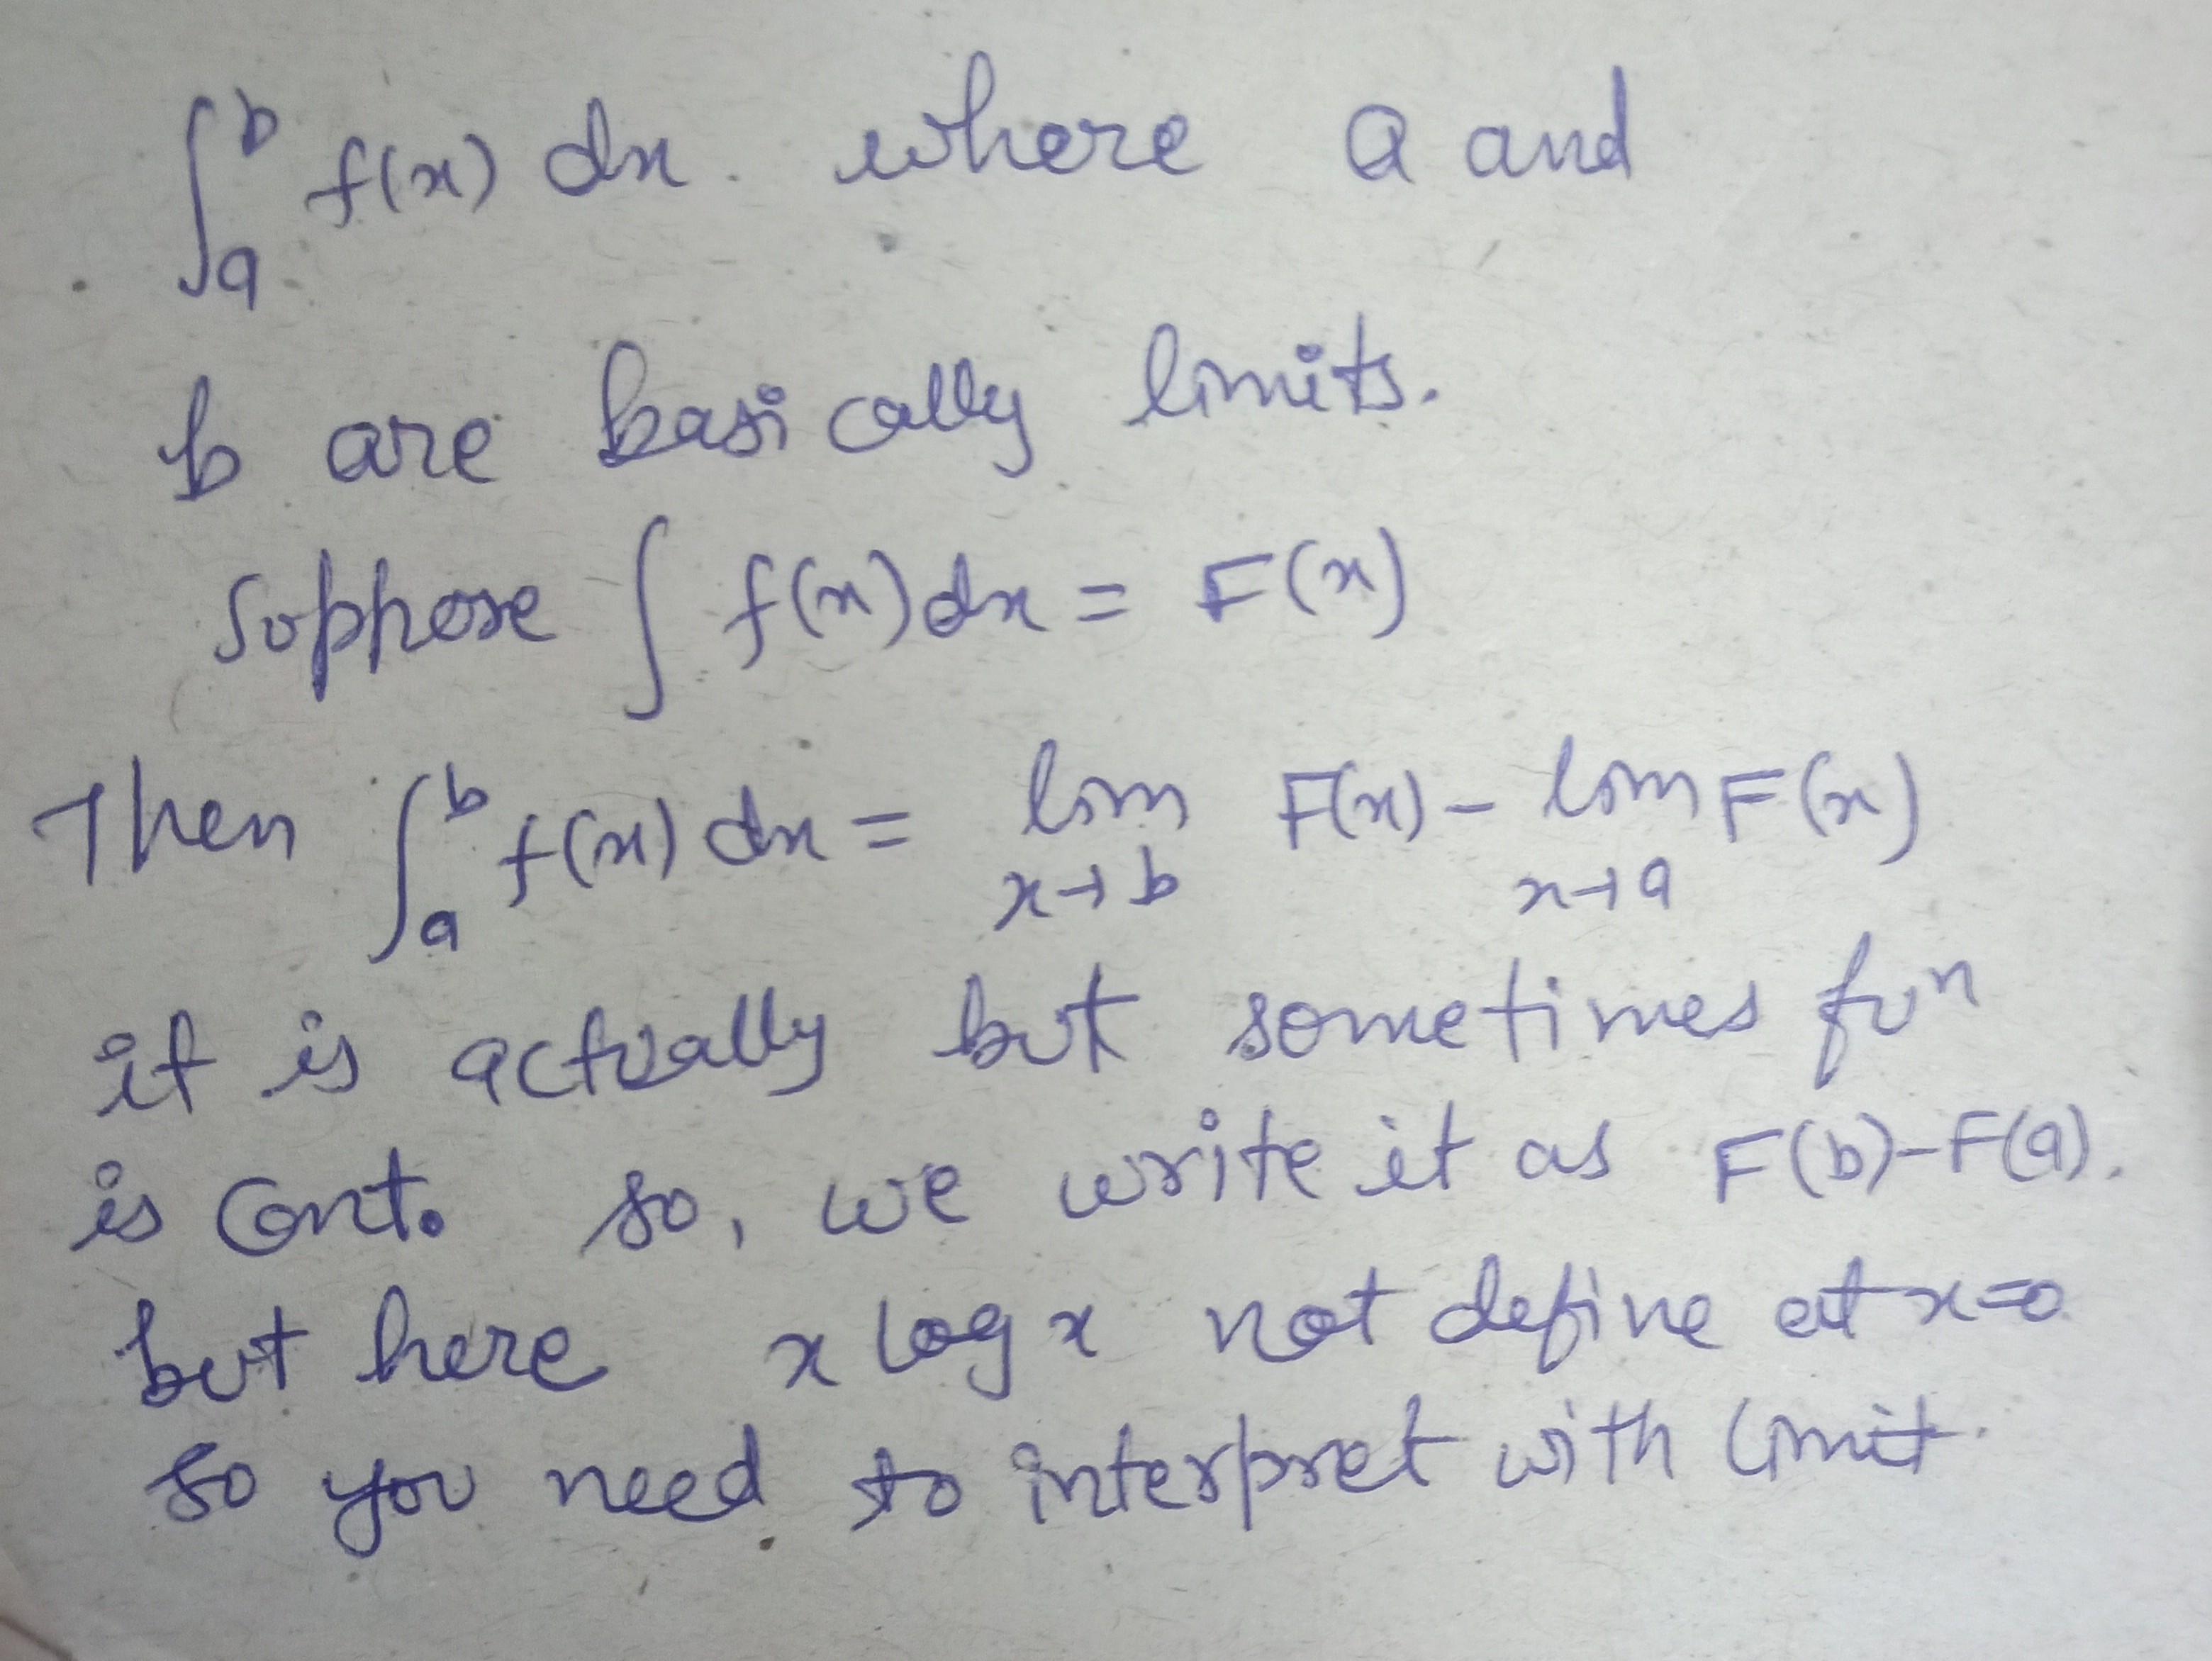 ∫_a^b f(x) dx. where a and
b are basically limits.
Suppose ∫ f(x) dx = F(x)
Then ∫_a^b f(x) dx = lim_{x→b} F(x) - lim_{x→a} F(x)
it is actually but sometimes fun
is cont. so, we write it as F(b)-F(a).
but here x log x not define at x=0
so you need to interpret with limit.